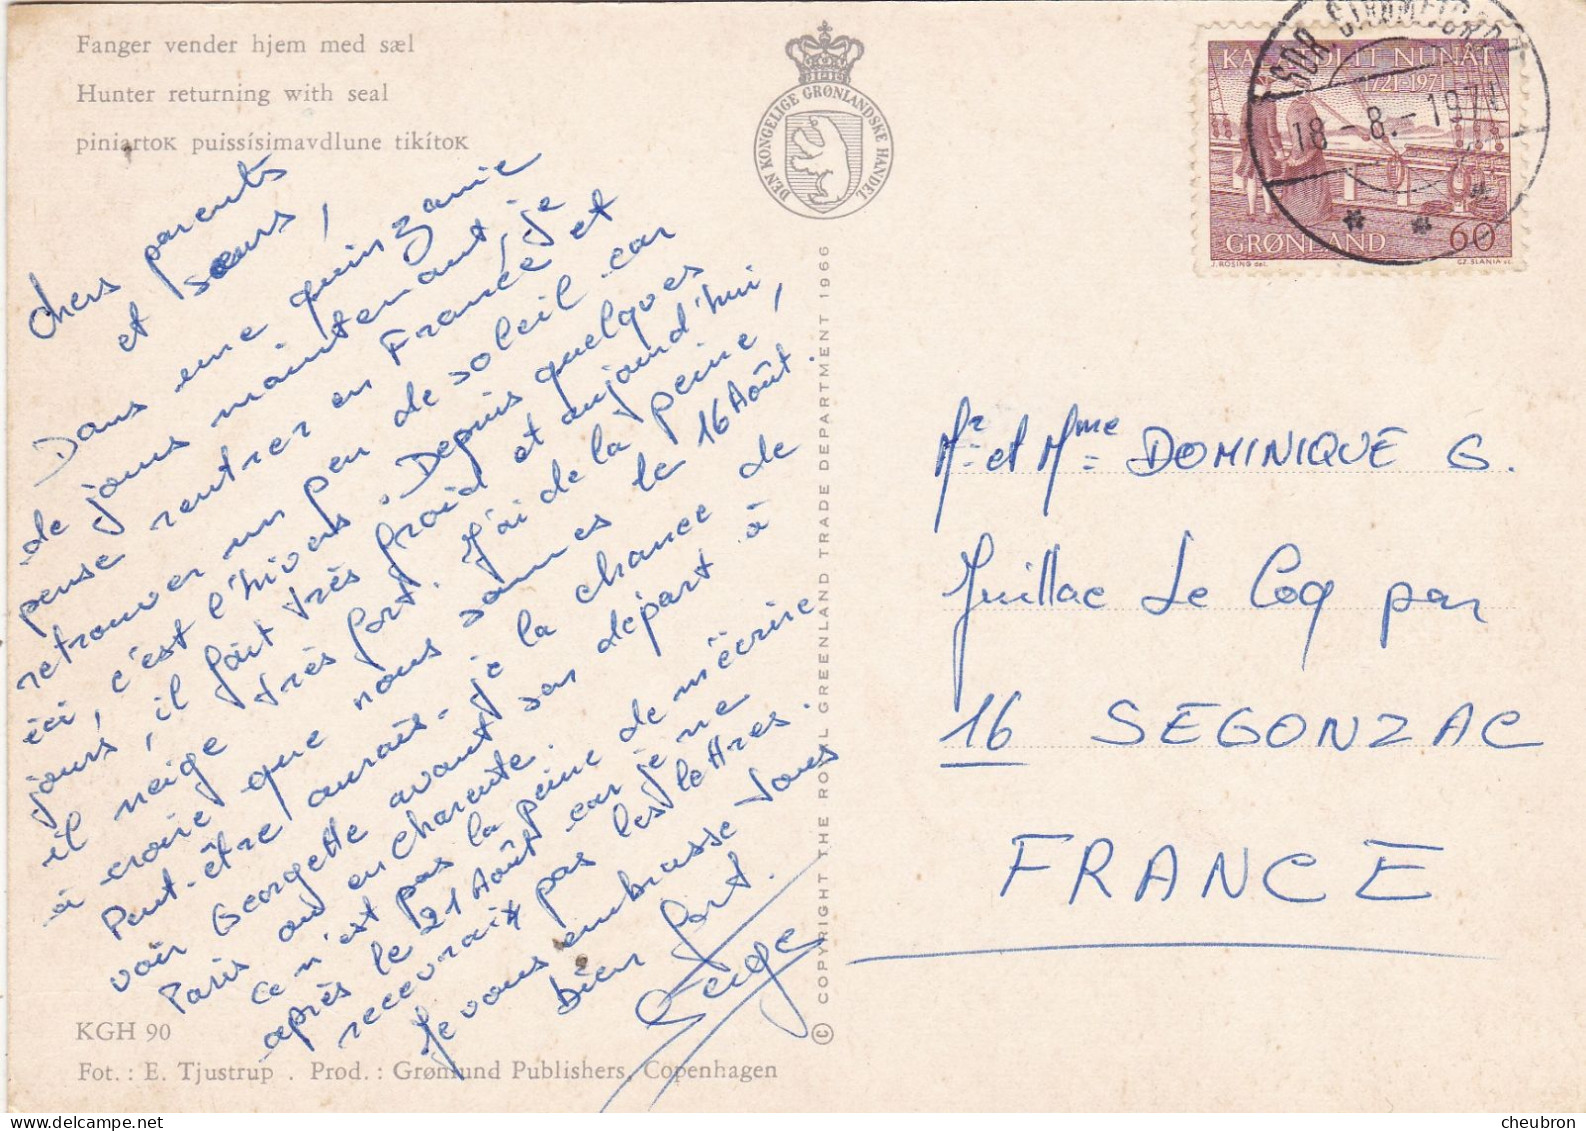 Fanger vender hjem med sæl
Hunter returning with seal
piniartoĸ puissísimavdlune tikítoĸ
DEN KONGELIGE GRØNLANDSKE HANDEL
Chers parents
et sœurs,
Dans une quinzanie
de jours maintenant, je
pense rentrer en France et
retrouver un peu de soleil car
ici, c'est l'hivers. Depuis quelques
jours, il fait très froid et aujourd'hui,
il neige très fort. J'ai de la peine,
à croire que nous sommes le 16 Août.
Peut-être aurais-je la chance de
voir Georgette avant son départ à
Paris ou en charente.
Ce n'est pas la peine de m'écrire
après le 21 Août car je ne
recevrait pas les lettres.
Je vous embrasse tous
bien fort.
Serge
KGH 90
Fot. : E. Tjustrup . Prod. : Grønlund Publishers, Copenhagen
© COPYRIGHT THE ROYAL GREENLAND TRADE DEPARTMENT 1966
SDR STRØMFJORD
18-8.-1971
KALÂTDLIT NUNÂT
1721-1971
GRØNLAND 60
J. ROSING del. CZ. SLANIA sc.
Mr et Mme DOMINIQUE G.
Juillac Le Coq par
16 SEGONZAC
FRANCE
cheubron
delcampe.net